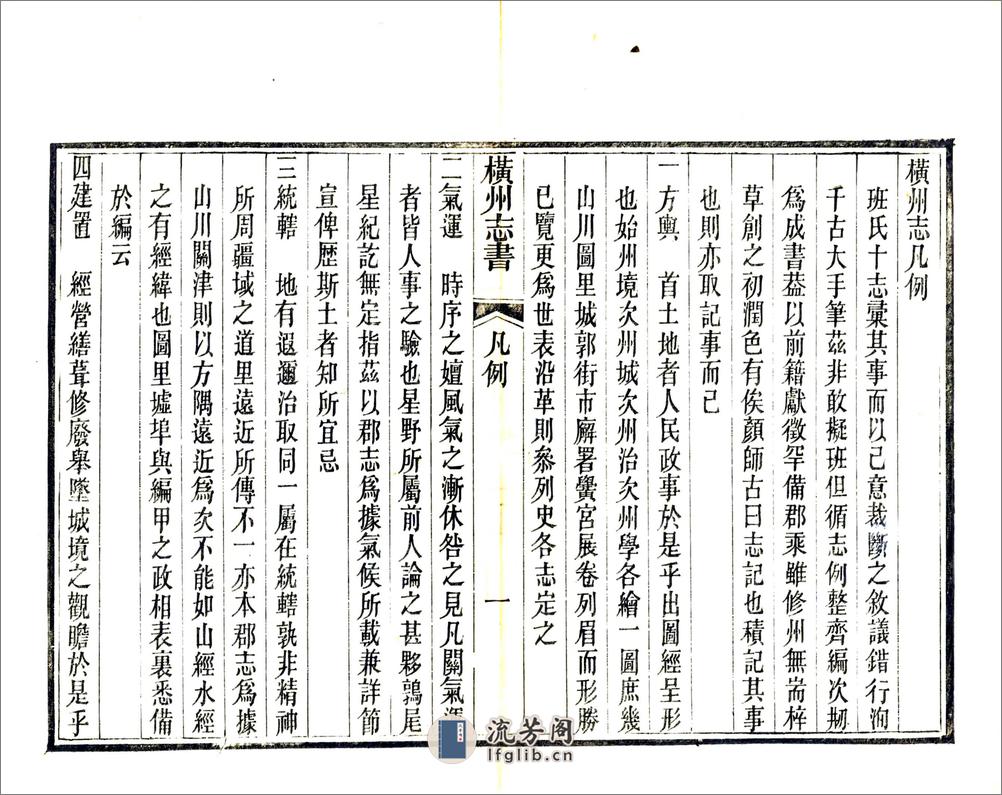 橫州志凡例
班氏十志彙其事而以己意裁斷之敘議錯行洵
千古大手筆茲非敢擬班但循志例整齊編次刱
爲成書葢以前籍獻徵罕備郡乘雖修州無耑梓
草創之初潤色有俟顏師古曰志記也積記其事
也則亦取記事而已
一方輿　首土地者人民政事於是乎出圖經呈形
也始州境次州城次州治次州學各繪一圖庶幾
山川圖里城郭街市廨署黌宮展卷列眉而形勝
已覽更爲世表沿革則叅列史各志定之
橫州志書　凡例　一
二氣運　時序之嬗風氣之漸休咎之見凡關氣運
者皆人事之驗也星野所屬前人論之甚夥鶉尾
星紀訖無定指茲以郡志爲據氣候所載兼詳節
宣俾歴斯土者知所宜忌
三統轄　地有遐邇治取同一屬在統轄孰非精神
所周疆域之道里遠近所傳不一亦本郡志爲據
山川關津則以方隅遠近爲次不能如山經水經
之有經緯也圖里墟埠與編甲之政相表裏悉備
於編云
四建置　經營繕葺修廢舉墜城境之觀瞻於是乎
流芳阁
lfglib.cn